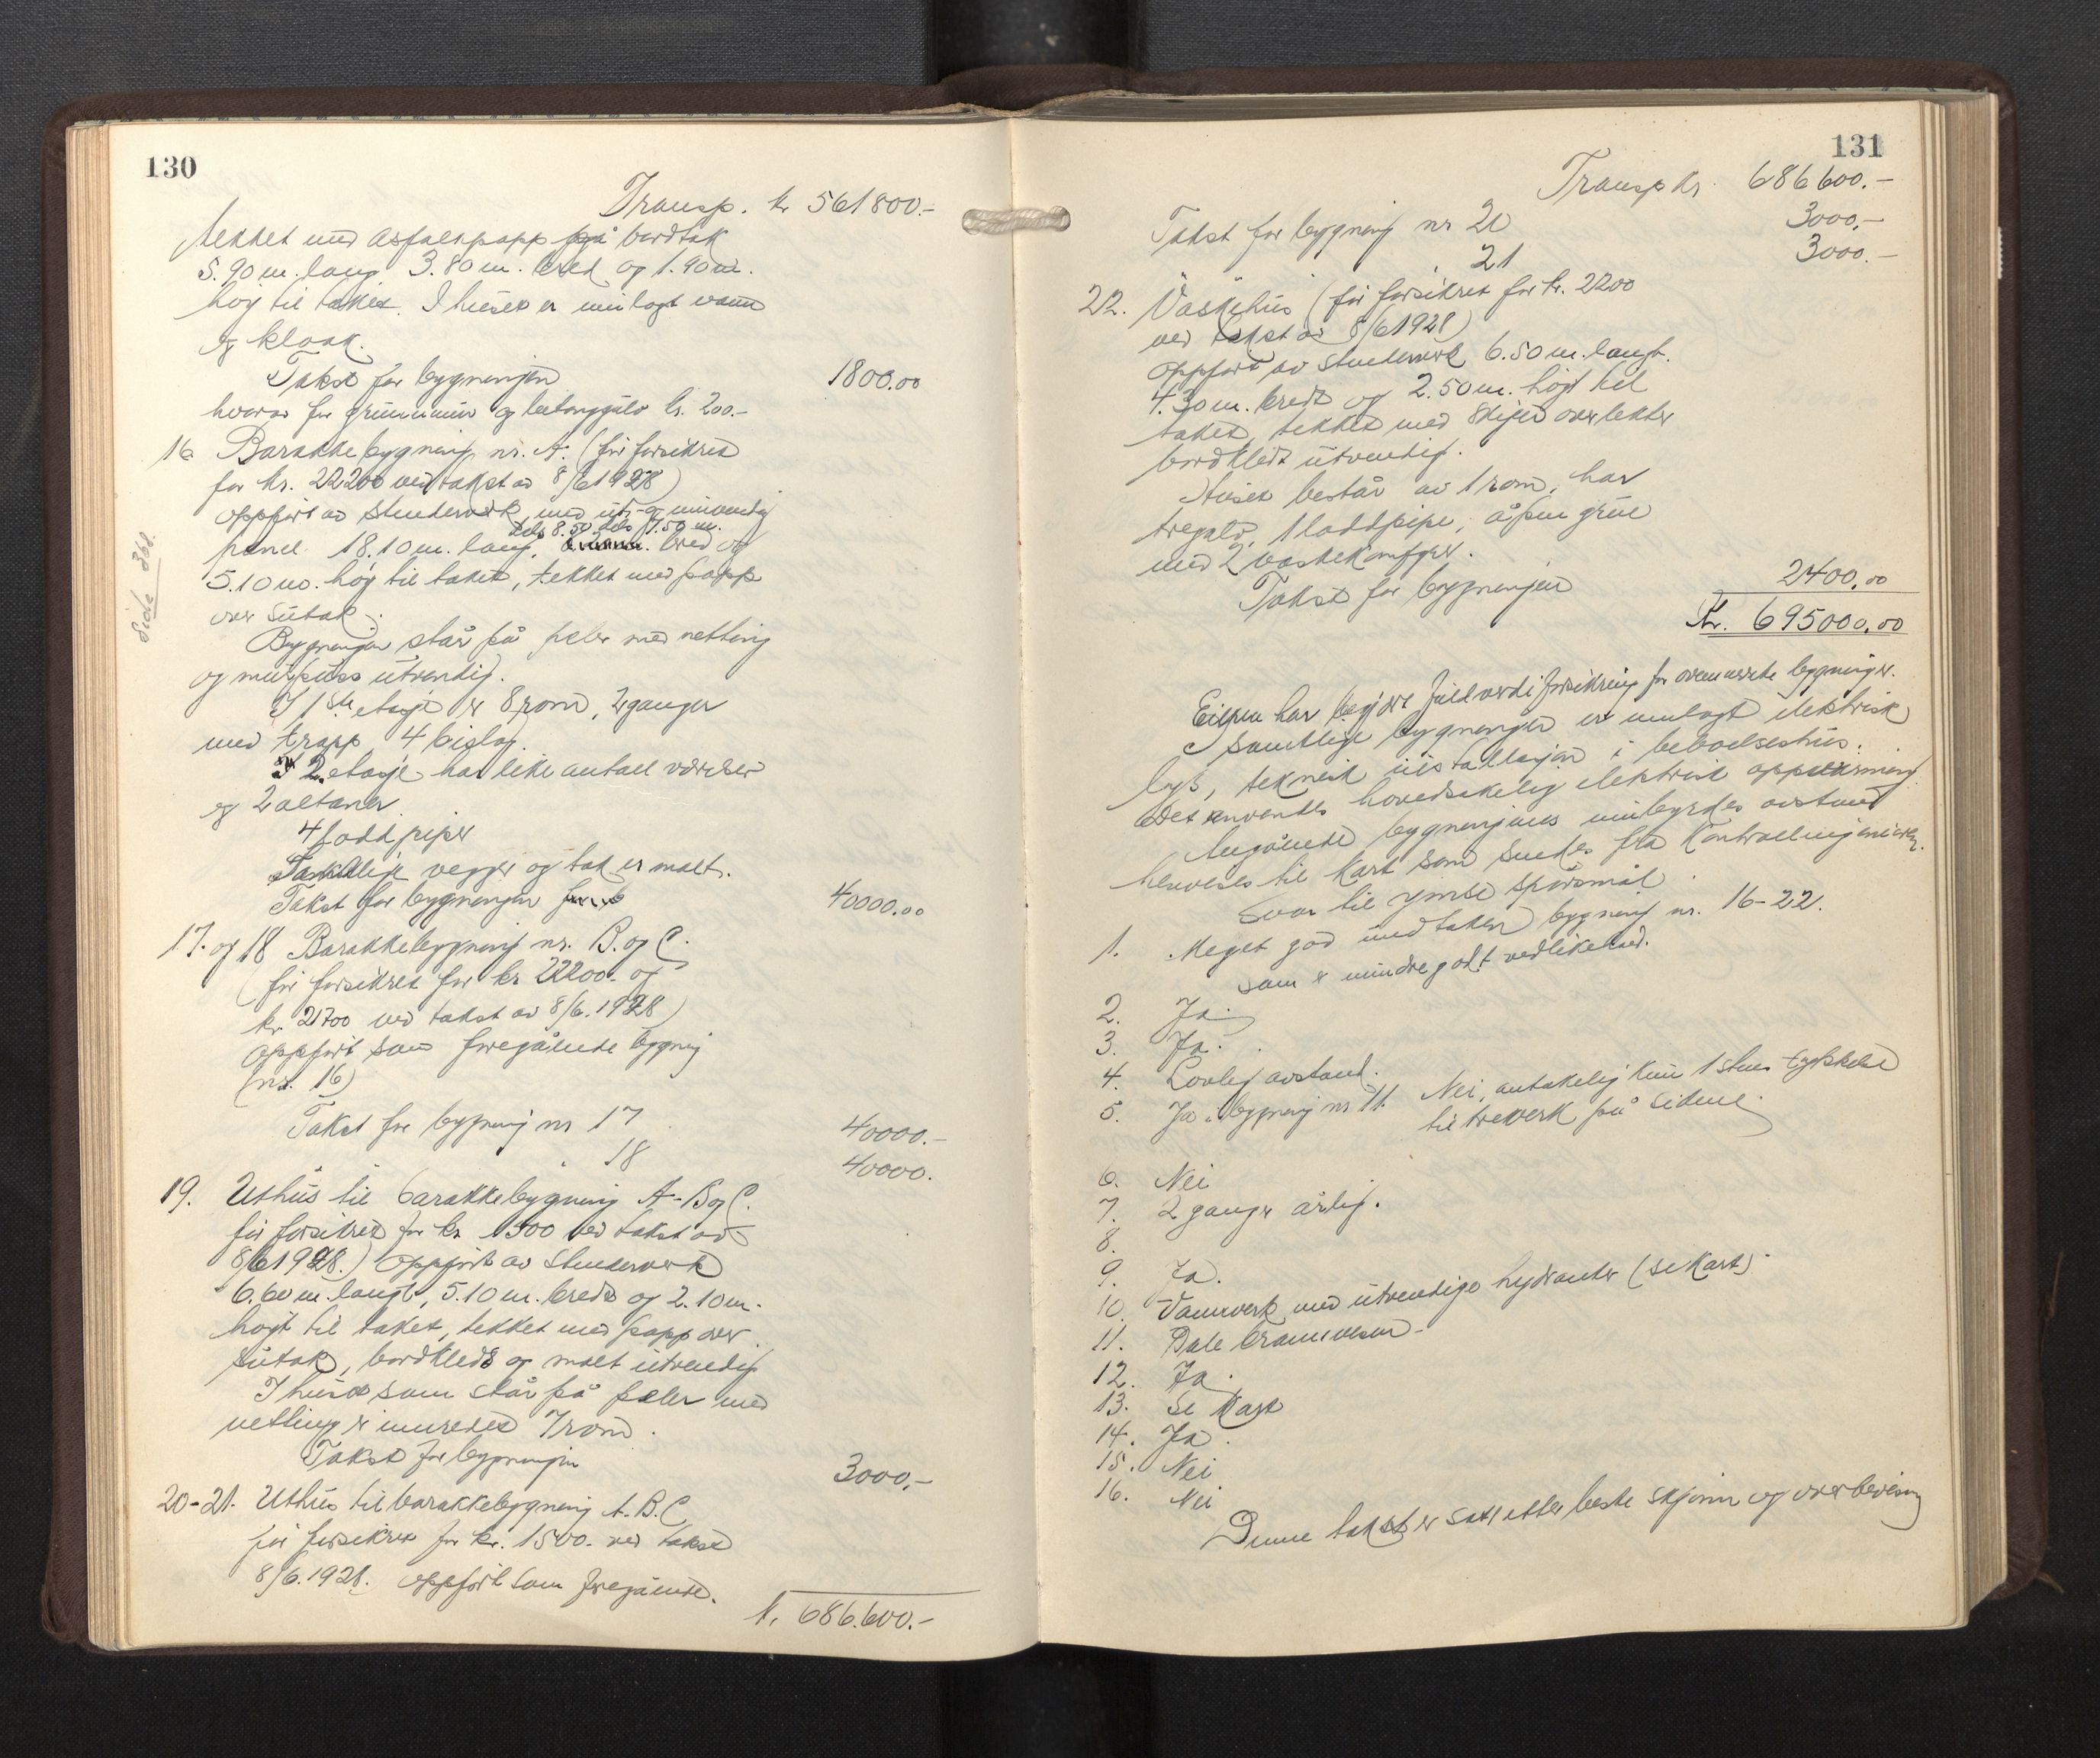 130
Transp. kr 561800.-
tekket med asfaltpapp på bordtak
5.90 m. lang 3.80 m. bred og 1.90 m.
høg til taket. I huset er innlagt vann
og kloak.
Takst for bygningen 1800.00
hvorav for grunnmur og betonggulv kr. 200.-
Side 368.
16. Barakkebygning nr. A. (før forsikret
for kr. 22200 ved takst av 8/6 1928)
oppført av stenderverk, med ut- og innvendig
dels 8.50 dels 7.50 m.
panel. 18.10 m. lang, bred og
5.10 m. høg til taket, tekket med papp
over sutak.
Bygningen står på peler med netting
og murpuss utvendig.
I 1ste etasje er 8 rom, 2 ganger
med trapp, 4 bislag.
I 2. etasje har like antall værelser
og 2 altaner.
4 loddpiper
Samtlige vegger og tak er malt.
Takst for bygningen 40000.00
17. og 18 Barakkebygning nr. B. og C.
(før forsikret for kr 22200. og
kr. 21700 ved takst av 8/6. 1928)
oppført som foregående bygning
(nr. 16)
Takst for bygning nr 17 40000.-
18 40000.
19. Uthus til barakkebygning A-B og C.
før forsikret for kr 1500 ved takst av
8/6 1928.) Oppført av stenderverk
6.60 m. langt, 5.10 m. bredt og 2.10 m.
høgt til taket, tekket med papp over
sutak, bordkledt og malt utvendig
I huset som står på peler med
netting er innredet 7 rom.
Takst for bygningen 3000,-
20-21. Uthus til barakkebygning A. B. C
før forsikret for kr. 1500. ved takst
8/6. 1928. oppført som foregående.
kr. 686.600.-
131
Transp kr. 686600.-
Takst for bygning nr 20 3000,-
21 3000.-
22. Vaskehus (før forsikret for kr. 2200
ved takst av 8/6 1928)
oppført av stenderverk 6.50 m. langt.
4.30 m. bredt og 2.50 m. høgt til
taket, tekket med skifer over lekter
bordkledt utvendig.
Huset består av 1 rom, har
tregulv, 1 loddpipe, åpen grue
med 2 vaskekomfyrer.
Takst for bygningen 2400.00
Kr. 695000.00
Eieren har begjært fuldverdiforsikring for ovennevnte bygninger.
I samtlige bygninger er innlagt elektrisk
lys, teknisk installasjon i beboelseshus.
Det anvendes hovedsakelig elektrisk oppvarming.
Angående bygningenes innbyrdes avstand
henvises til kart som sendes fra kontrollingeniøren.
Svar til ymse spørsmål.
1. Meget god undtaken bygning nr. 16-22.
som er mindre godt vedlikehold.
2. Ja.
3. Ja.
4. Lovlig avstand.
5. Ja. bygning nr 11. Nei, antakelig kun 1 stens tykkelse
til treverk på sidene.
6. Nei
7. 2 ganger årlig.
8.
9. Ja.
10. Vannverk med utvendige hydranter (se kart).
11. Dale brannvesen.
12. Ja.
13. Se kart
14. Ja.
15. Nei
16. Nei
Denne takst er satt etter beste skjønn og overbevisning